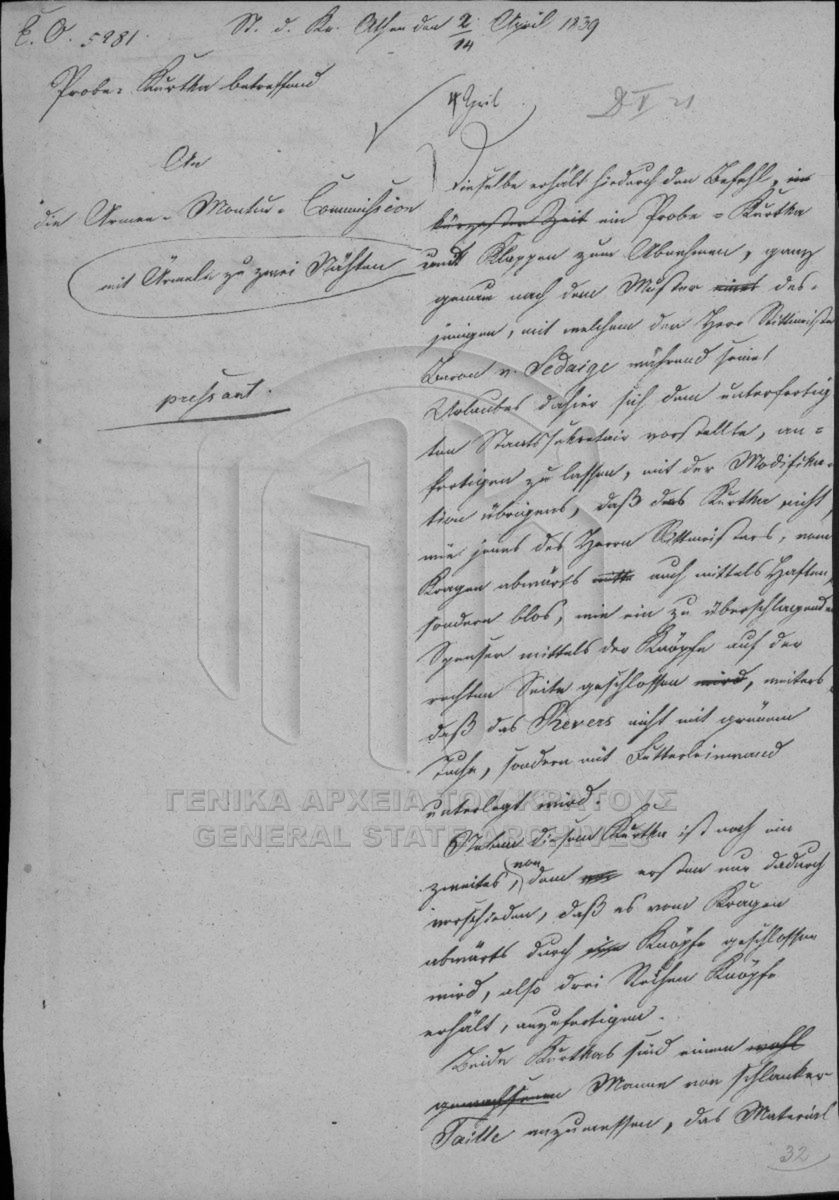 E. O. 5281. St. d. Kr. Athen den 2/14 April 1839
Probe-Kurtka betreffend
4 April
An
die Armee-Montur-Commission
mit Ärmeln zu zwei Nähten
pressant.
Dieselbe erhält hiedurch den Befehl, in
kürzester Zeit ein Probe-Kurtka
und Klappen zum Abnehmen, ganz
genau nach dem Muster eines des-
jenigen, mit welchem der Herr Rittmeister
Baron v. Sedaige während seines
Urlaubes dahier sich dem unterfertig
ten Staatssekretair vorstellte, an-
fertigen zu lassen, mit der Modifika-
tion übrigens, daß das Kurtka nicht,
wie jenes des Herrn Rittmeisters, vom
Kragen abwärts auch mittels Haften,
sondern blos, wie ein zu überschlagender
Spenser mittels der Knöpfe auf der
rechten Seite geschlossen wird, weiters
daß das Revers nicht mit grünem
Tuche, sondern mit Futterleinwand
unterlegt wird.
Neben diesem Kurtka ist noch ein
zweites, von dem ersten nur dadurch
verschieden, daß es vom Kragen
abwärts durch Knöpfe geschlossen
wird, also drei Reihen Knöpfe
erhält, anzufertigen.
Beide Kurtkas sind einem wohl
gewachsenen Manne von schlanker
Taille anzumessen, das Material
32
ΓΕΝΙΚΑ ΑΡΧΕΙΑ ΤΟΥ ΚΡΑΤΟΥΣ
GENERAL STATE ARCHIVES